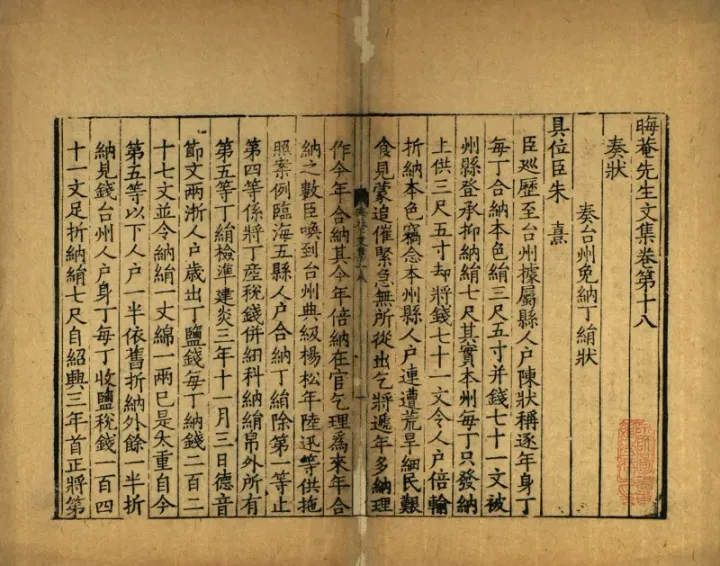 晦菴先生文集卷第十八
奏狀
奏台州免納丁絹狀
具位臣朱熹
臣巡歷至台州據屬縣人户陳狀稱逐年身丁
每丁合納本色絹三尺五寸并錢七十一文被
州縣登承抑納絹七尺其實本州每丁只發納
上供三尺五寸却將錢七十一文令人户倍輸
折納本色竊念本州縣人户連遭荒旱細民艱
食見蒙追催緊急無所從出乞將遞年多納理
作今年合納其今年倍納在官乞理爲來年合
納之數臣喚到台州典級楊松年陸迅等供拖
照案例臨海五縣人户合納丁絹除第一等止
第四等係將丁産稅錢併紐科納絹帛外所有
第五等丁絹檢準建炎三年十一月三日德音
節文兩浙人户歲出丁鹽錢每丁納錢二百二
十七文並令納絹一丈綿一兩已是太重自今
第五等以下人户一半依舊折納外餘一半折
納見錢台州人户身丁每丁收鹽稅錢一百四
十一文足折納絹七尺自紹興三年首正將第